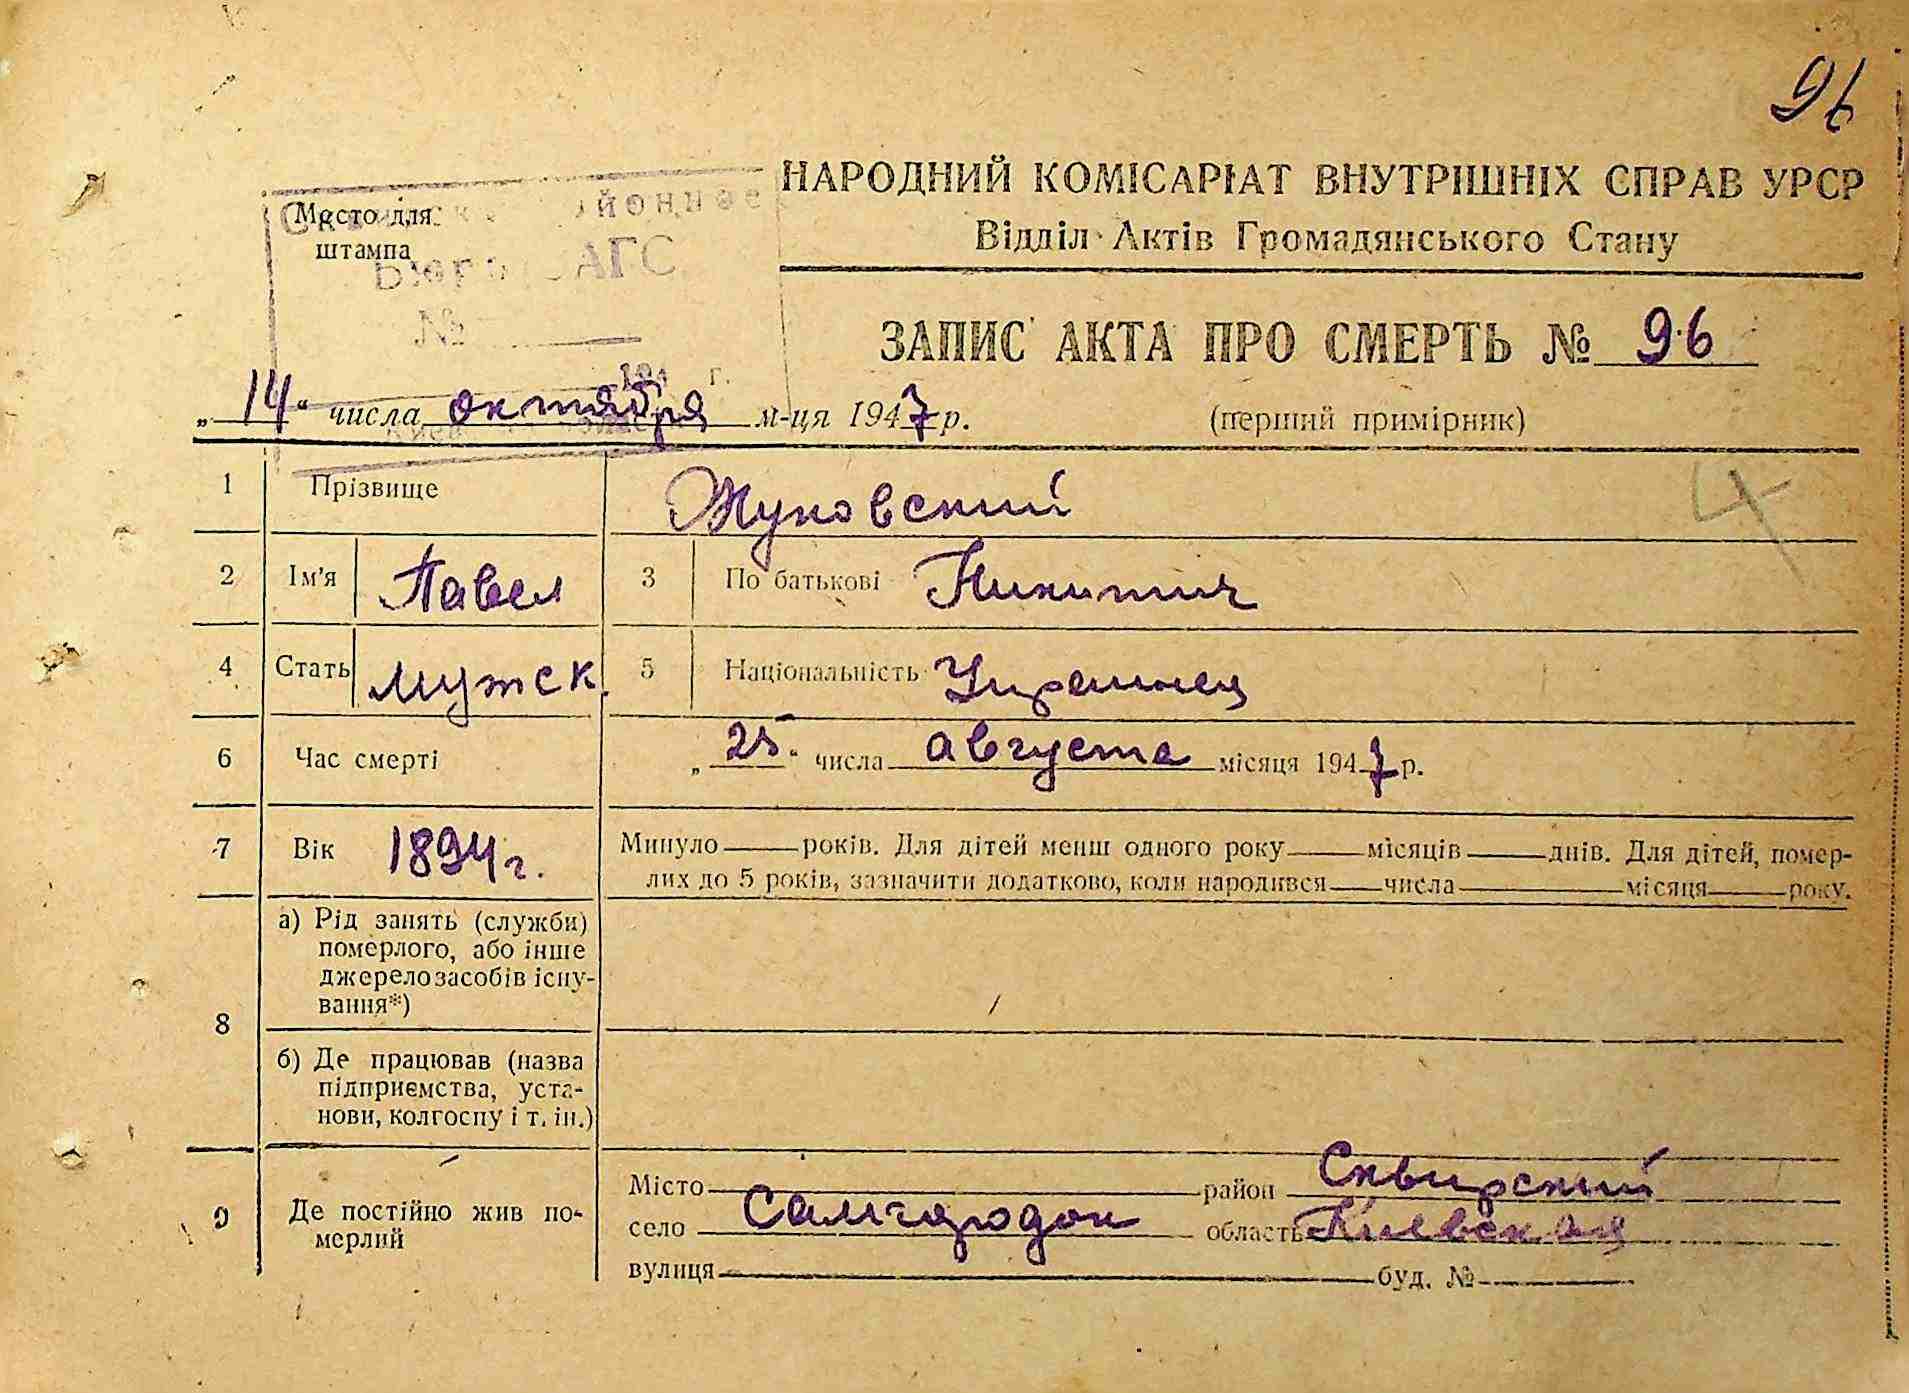 96
НАРОДНИЙ КОМІСАРІАТ ВНУТРІШНІХ СПРАВ УРСР
Відділ Актів Громадянського Стану
Место для
штампа
АГС
№
ЗАПИС АКТА ПРО СМЕРТЬ № 96
„14“ числа октября м-ця 1947 р.
(перший примірник)
1 Прізвище Жуковский
4
2 Ім'я Павел 3 По батькові Никитич
4 Стать мужск. 5 Національність Украинец
6 Час смерті „25“ числа августа місяця 1947 р.
7 Вік 1894 г. Минуло років. Для дітей менш одного року місяців днів. Для дітей, помер-
лих до 5 років, зазначити додатково, коли народився числа місяця року.
8 а) Рід занять (служби)
померлого, або інше
джерело засобів існу-
вання*)
б) Де працював (назва
підприємства, уста-
нови, колгоспу і т. ін.)
9 Де постійно жив по-
мерлий
Місто район Сквирский
село Самгородок область Киевская
вулиця буд. №